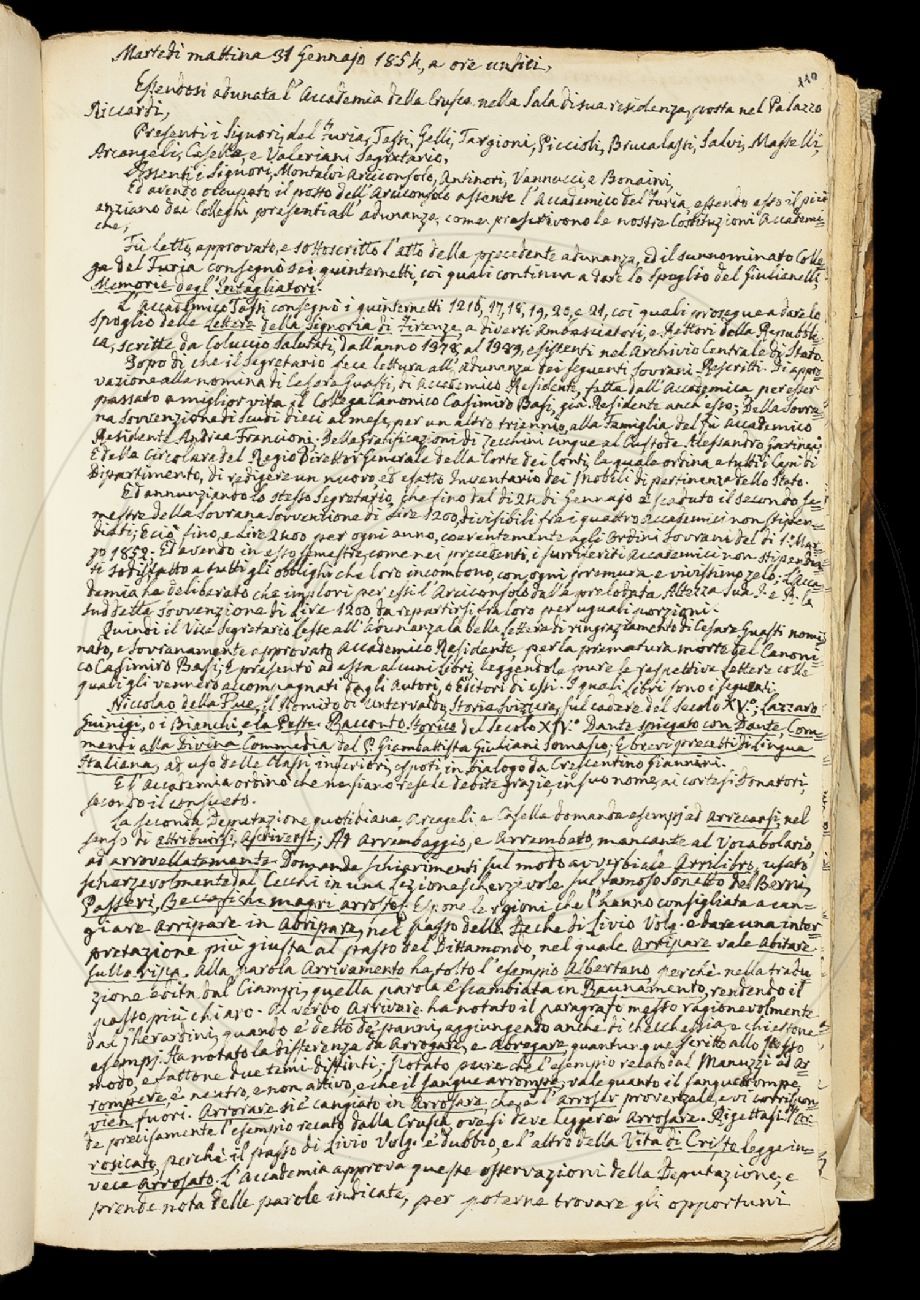 110
Martedì mattina 31 Gennajo 1854, a ore undici,
Essendosi adunata l'Accademia della Crusca nella Sala di sua residenza, posta nel Palazzo
Riccardi,
Presenti i Signori, del Furia, Tassi, Gelli, Targioni, Piccioli, Brucalassi, Salvi, Masselli,
Arcangeli, Casella, e Valeriani Segretario,
Assenti i Signori, Montalvi Arciconsolo, Antinori, Vannucci, e Bonaini,
Ed avendo occupato il posto dell'Arciconsolo assente l'Accademico del Furia, essendo esso il più
anziano dei Colleghi presenti all'adunanza, come prescrivono le nostre Costituzioni Accademi=
che,
Fù letto, approvato, e sottoscritto l'atto della precedente adunanza, ed il sunnominato Colle=
ga del Furia consegnò sei quinternetti, coi quali continua a dare lo spoglio del Giulianelli,
Memorie degl'Intagliatori.
L'Accademico Tassi consegnò i quinternetti 1216, 17, 18, 19, 20, e 21, coi quali prosegue a dare lo
spoglio delle Lettere della Signoria di Firenze, a diversi Ambasciatori, e Rettori della Repubbli=
ca, scritte da Coluccio Salutati, dall'anno 1378, al 1383, esistenti nel Archivio Centrale di Stato.
Dopo di che il Segretario fece lettura all'Adunanza dei seguenti Sovrani Rescritti. Di appro=
vazione alla nomina di Cesare Guasti, di Accademico Residente, fatta dall'Accademica, per esser
passato a miglior vita il Collega Canonico Casimiro Basi, già Residente anch'esso; Della Sovra=
na Sovvenzione di Scudi dieci al mese, per un altro triennio, alla Famiglia del fu Accademico
Residente Andrea Francioni. Della gratificazioni di Zecchini cinque al Custode Alessandro Garinei;
E della Circolare del Regio Direttor Generale della Corte dei Conti, la quale ordina a tutti i Capi di
Dipartimento, di redigere un nuovo, ed esatto Inventario dei Mobili di pertinenza dello Stato.
Ed annunziando lo stesso Segretario, che fino dal dì 24 di Gennajo è scaduto il secondo se=
mestre della Sovrana Sovvenzione di Lire 1200, divisibili fra i quattro Accademici non stipen=
diati; E ciò fino, a Lire 2400 per ogni anno, coerentemente agli Ordini Sovrani del dì 1.º Mar=
zo 1852. Ed avendo in esso semestre, come nei precedenti, i surriferiti Accademici non stipendia=
ti sodisfatto a tutti gli obblighi che loro incombono, con ogni premura, e vivissimo zelo; L'Acca=
demia ha deliberato che implori per essi l'Arciconsolo dalla prelodata Altezza Sua I. e R. la
suddetta Sovvenzione di Lire 1200 da repartirsi fra loro per uguali porzioni.
Quindi il Vice Segretario lesse all'Adunanza la bella lettera di ringraziamento di Cesare Guasti nomi=
nato, e Sovranamente approvato Accademico Residente, per la prematura morte del Canoni=
co Casimiro Basi; E presentò ad essa alcuni libri, leggendole pure le respettive Lettere colle
quali gli vennero accompagnati dagli Autori, o Editori di essi. I quali libri sono i seguenti.
Niccolao della Flue, il Romito di Untervaldo, Storia Svizzera, sul cadere del secolo XV.º; Lazzaro
Guinigi, o i Bianchi, e la Peste. Racconto Storico del secolo XIV.º Dante spiegato con Dante. Com=
menti alla Divina Commedia del P. Giambattista Giuliani Somasco; E brevi precetti di Lingua
Italiana, ad uso delle Classi inferiori, esposti, in Dialogo da Crescentino Giannini.
E l'Accademia ordinò che ne siano rese le debite grazie, in suo nome, ai cortesi donatori,
secondo il consueto.
La seconda Deputazione quotidiana, Arcageli e Casella domanda esempj ad Arrecarsi, nel
senso di attribuirsi, ascriversi; Ad Arrembaggio, e Arrembato, mancante al Vocabolario,
ad arrovellatamente. Domanda schiarimenti sul modo avverbiale Arrilibri, usato
scherzevolmente dal Cecchi in una Lezione scherzevole sul famoso Sonetto del Berni,
Passeri, Beccafichi magri arrosto. Espone le ragioni che l'hanno consigliata a can=
giare Arripare in Abripare, nel passo delle Deche di Livio Volg. e dare una inter=
pretazione più giusta al passo del Dittamondo, nel quale Arripare vale Abitare
sulla ripa. Alla parola Arrivamento ha tolto l'esempio Albertano, perchè nella tradu=
zione edita dal Ciampi, quella parola è scambiata in Baunamento, rendendo il
passo più chiaro. Al verbo Arrivare ha notato il paragrafo messo ragionevolmente
dal Gherardini, quando è detto de' panni, aggiungendo anche di checchessia, e chiestone
esempj. Ha notato la differenza da Arrogare, e Abregare, quantunque scritto allo stesso
modo, e fattone due temi distinti; Notato pure che l'esempio relato dal Manuzzi ad Ar=
rompere, è neutro, e non attivo, e che il sangue arrompe, vale quanto il sangue rompe,
vien fuori. Arrorare si è cangiato in Arrosare, che è l'Arroser provenzale, e vi corrispon=
de precisamente l'esempio recato dalla Crusca, ove si deve leggere Arrosare. Rigettasi Ar=
rosicato, perchè il passo di Livio Volg. è dubbio, e l'altro della Vita di Cristo legge in=
vece Arrosato. L'Accademia approva queste osservazioni della Deputazione, e
prende nota delle parole indicate, per poterne trovare gli opportuni